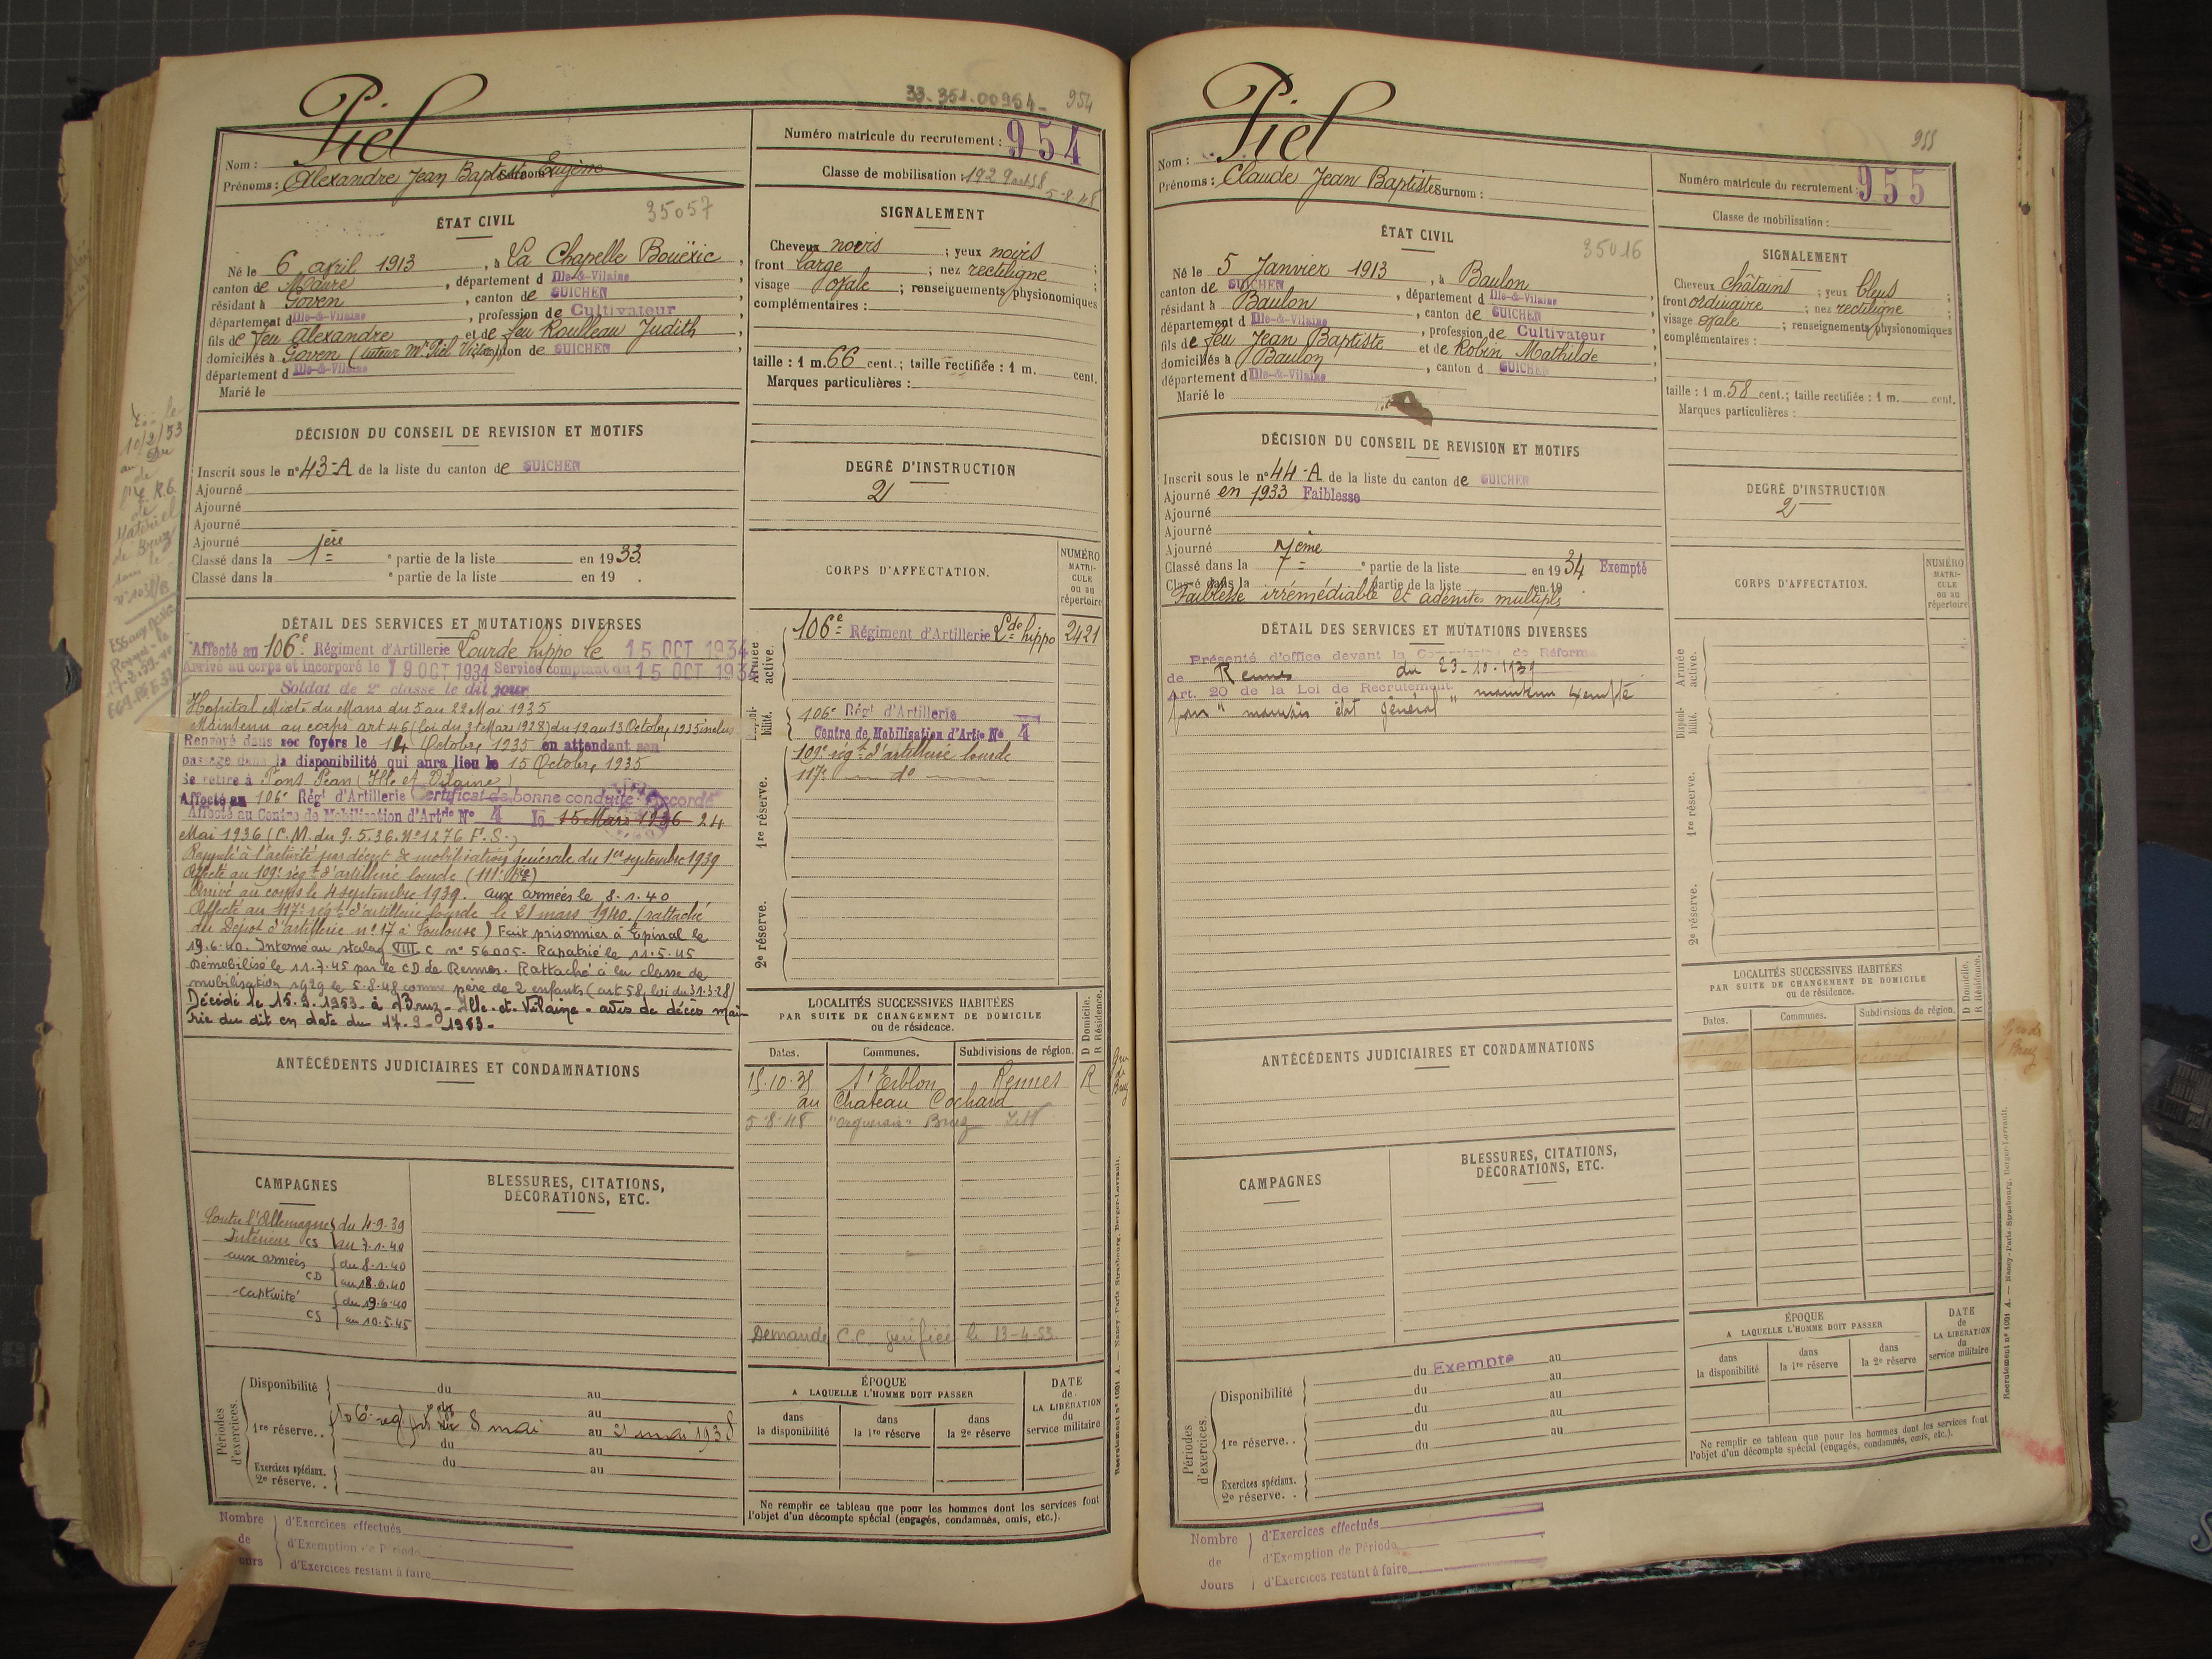 33.351.00954 - 954
Piel
Nom :
Prénoms : Alexandre Jean Baptiste Eugène
Numéro matricule du recrutement : 954
Classe de mobilisation : 1929 art 58
5-8-48
ÉTAT CIVIL
35057
Né le 6 avril 1913, à La Chapelle Bouëxic,
canton de Maure, département d Ille-&-Vilaine
résidant à Goven, canton de GUICHEN
département d Ille-&-Vilaine, profession de Cultivateur
fils de feu Alexandre et de feu Roulleau Judith,
domiciliés à Goven (tuteur Mr Piel Victor) canton de GUICHEN
département d Ille-&-Vilaine
Marié le
SIGNALEMENT
Cheveux noirs ; yeux noirs ;
front large ; nez rectiligne ;
visage ovale ; renseignements physionomiques
complémentaires :
taille : 1 m. 66 cent.; taille rectifiée : 1 m. cent.
Marques particulières :
DÉCISION DU CONSEIL DE REVISION ET MOTIFS
Inscrit sous le n° 43-A de la liste du canton de GUICHEN
Ajourné
Ajourné
Ajourné
Ajourné
Classé dans la 1ère e partie de la liste en 1933.
Classé dans la e partie de la liste en 19 .
DEGRÉ D'INSTRUCTION
2
DÉTAIL DES SERVICES ET MUTATIONS DIVERSES
Affecté au 106e Régiment d'Artillerie Lourde hippo le 15 OCT 1934
Arrivé au corps et incorporé le 19 OCT 1934 Service comptant du 15 OCT 1934
Soldat de 2e classe le dit jour
Hopital Mixte du Mans du 5 au 22 Mai 1935
Maintenu au corps art 46 (loi du 31 Mars 1928) du 12 au 13 Octobre 1935 inclus
Renvoyé dans ses foyers le 14 Octobre 1935 en attendant son
passage dans la disponibilité qui aura lieu le 15 Octobre 1935
Se retire à Pont Péan (Ille et Vilaine)
Affecté au 106e Régt d'Artillerie Certificat de bonne conduite Accordé
Affecté au Centre de Mobilisation d'Artrie N° 4 le 15 Mars 1936 24
Mai 1936 (C.M. du 9.5.36. N° 1276 F.S.)
Rappelé à l'activité par décret de mobilisation générale du 1er septembre 1939
Affecté au 109e régt d'artillerie lourde (111e Bie)
Arrivé au corps le 4 septembre 1939. aux armées le 8.1.40
Affecté au 117e régt d'artillerie lourde le 21 mars 1940. (rattaché
au Dépot d'artillerie n° 17 à Toulouse) Fait prisonnier à Epinal le
19.6.40. Interné au stalag VIII C n° 56005. Rapatrié le 11.5.45
Démobilisé le 11.7.45 par le CD de Rennes. Rattaché à la classe de
mobilisation 1929 le 5.8.48 comme père de 2 enfants (art 58, loi du 31.3.28)
Décédé le 15.9.1953 à Bruz - Ille-et-Vilaine - avis de décès mai-
rie du dit en date du 17.9.1953 -
CORPS D'AFFECTATION.
NUMÉRO MATRICULE ou au répertoire
Armée active.
106e Régiment d'Artillerie Lde hippo 2421
Disponibilité.
106e Régt d'Artillerie
Centre de Mobilisation d'Artie N° 4
109e régt d'artillerie lourde
117e — do —
1re réserve.
2e réserve.
ANTÉCÉDENTS JUDICIAIRES ET CONDAMNATIONS
LOCALITÉS SUCCESSIVES HABITÉES
PAR SUITE DE CHANGEMENT DE DOMICILE
ou de résidence.
D Domicile.
R Résidence.
Dates. Communes. Subdivisions de région.
15.10.35 St Erblon Rennes R
au Chateau Cochard
5.8.48 Bruz
Demande C.C. le 13-4-53
CAMPAGNES
Contre l'Allemagne du 4-9-39
Intérieur CS au 7.1.40
aux armées du 8.1.40
CD au 18.6.40
captivité du 19.6.40
CS au 10.5.45
BLESSURES, CITATIONS,
DÉCORATIONS, ETC.
Périodes d'exercices.
Disponibilité du au
du au
1re réserve.. 106e du 8 mai au 21 mai 1938
du au
Exercices spéciaux.
2e réserve. . du au
ÉPOQUE
A LAQUELLE L'HOMME DOIT PASSER
dans la disponibilité dans la 1re réserve dans la 2e réserve
DATE de LA LIBÉRATION du service militaire
Ne remplir ce tableau que pour les hommes dont les services font
l'objet d'un décompte spécial (engagés, condamnés, omis, etc.).
Recrutement n° 1091 A. — Nancy-Paris-Strasbourg, Berger-Levrault.
Nombre de Jours
d'Exercices effectués
d'Exemption de Période
d'Exercices restant à faire
955
Piel
Nom :
Prénoms : Claude Jean Baptiste Surnom :
Numéro matricule du recrutement : 955
Classe de mobilisation :
ÉTAT CIVIL
35016
Né le 5 Janvier 1913, à Baulon
canton de GUICHEN, département d Ille-&-Vilaine
résidant à Baulon, canton de GUICHEN
département d Ille-&-Vilaine, profession de Cultivateur
fils de feu Jean Baptiste et de Robin Mathilde
domiciliés à Baulon, canton d GUICHEN
département d Ille-&-Vilaine
Marié le
SIGNALEMENT
Cheveux châtains ; yeux bleus ;
front ordinaire ; nez rectiligne ;
visage ovale ; renseignements physionomiques
complémentaires :
taille : 1 m. 58 cent.; taille rectifiée : 1 m. cent.
Marques particulières :
DÉCISION DU CONSEIL DE REVISION ET MOTIFS
Inscrit sous le n° 44-A de la liste du canton de GUICHEN
Ajourné en 1933 Faiblesse
Ajourné
Ajourné
Ajourné
Classé dans la 7ème e partie de la liste en 1934 Exempté
Classé dans la e partie de la liste en 19
Faiblesse irrémédiable et adénites multiples
DEGRÉ D'INSTRUCTION
2
DÉTAIL DES SERVICES ET MUTATIONS DIVERSES
Présenté d'office devant la Commission de Réforme
de Rennes du 23-10-1939
Art. 20 de la Loi de Recrutement. maintenu exempté
pour "mauvais état général"
CORPS D'AFFECTATION.
NUMÉRO MATRICULE ou au répertoire
Armée active.
Disponibilité.
1re réserve.
2e réserve.
ANTÉCÉDENTS JUDICIAIRES ET CONDAMNATIONS
LOCALITÉS SUCCESSIVES HABITÉES
PAR SUITE DE CHANGEMENT DE DOMICILE
ou de résidence.
D Domicile.
R Résidence.
Dates. Communes. Subdivisions de région.
CAMPAGNES
BLESSURES, CITATIONS,
DÉCORATIONS, ETC.
Périodes d'exercices.
Disponibilité du Exempté au
du au
du au
1re réserve.. du au
du au
Exercices spéciaux.
2e réserve. .
ÉPOQUE
A LAQUELLE L'HOMME DOIT PASSER
dans la disponibilité dans la 1re réserve dans la 2e réserve
DATE de LA LIBÉRATION du service militaire
Ne remplir ce tableau que pour les hommes dont les services font
l'objet d'un décompte spécial (engagés, condamnés, omis, etc.).
Recrutement n° 1091 A. — Nancy-Paris-Strasbourg, Berger-Levrault.
Nombre de Jours
d'Exercices effectués
d'Exemption de Période
d'Exercices restant à faire